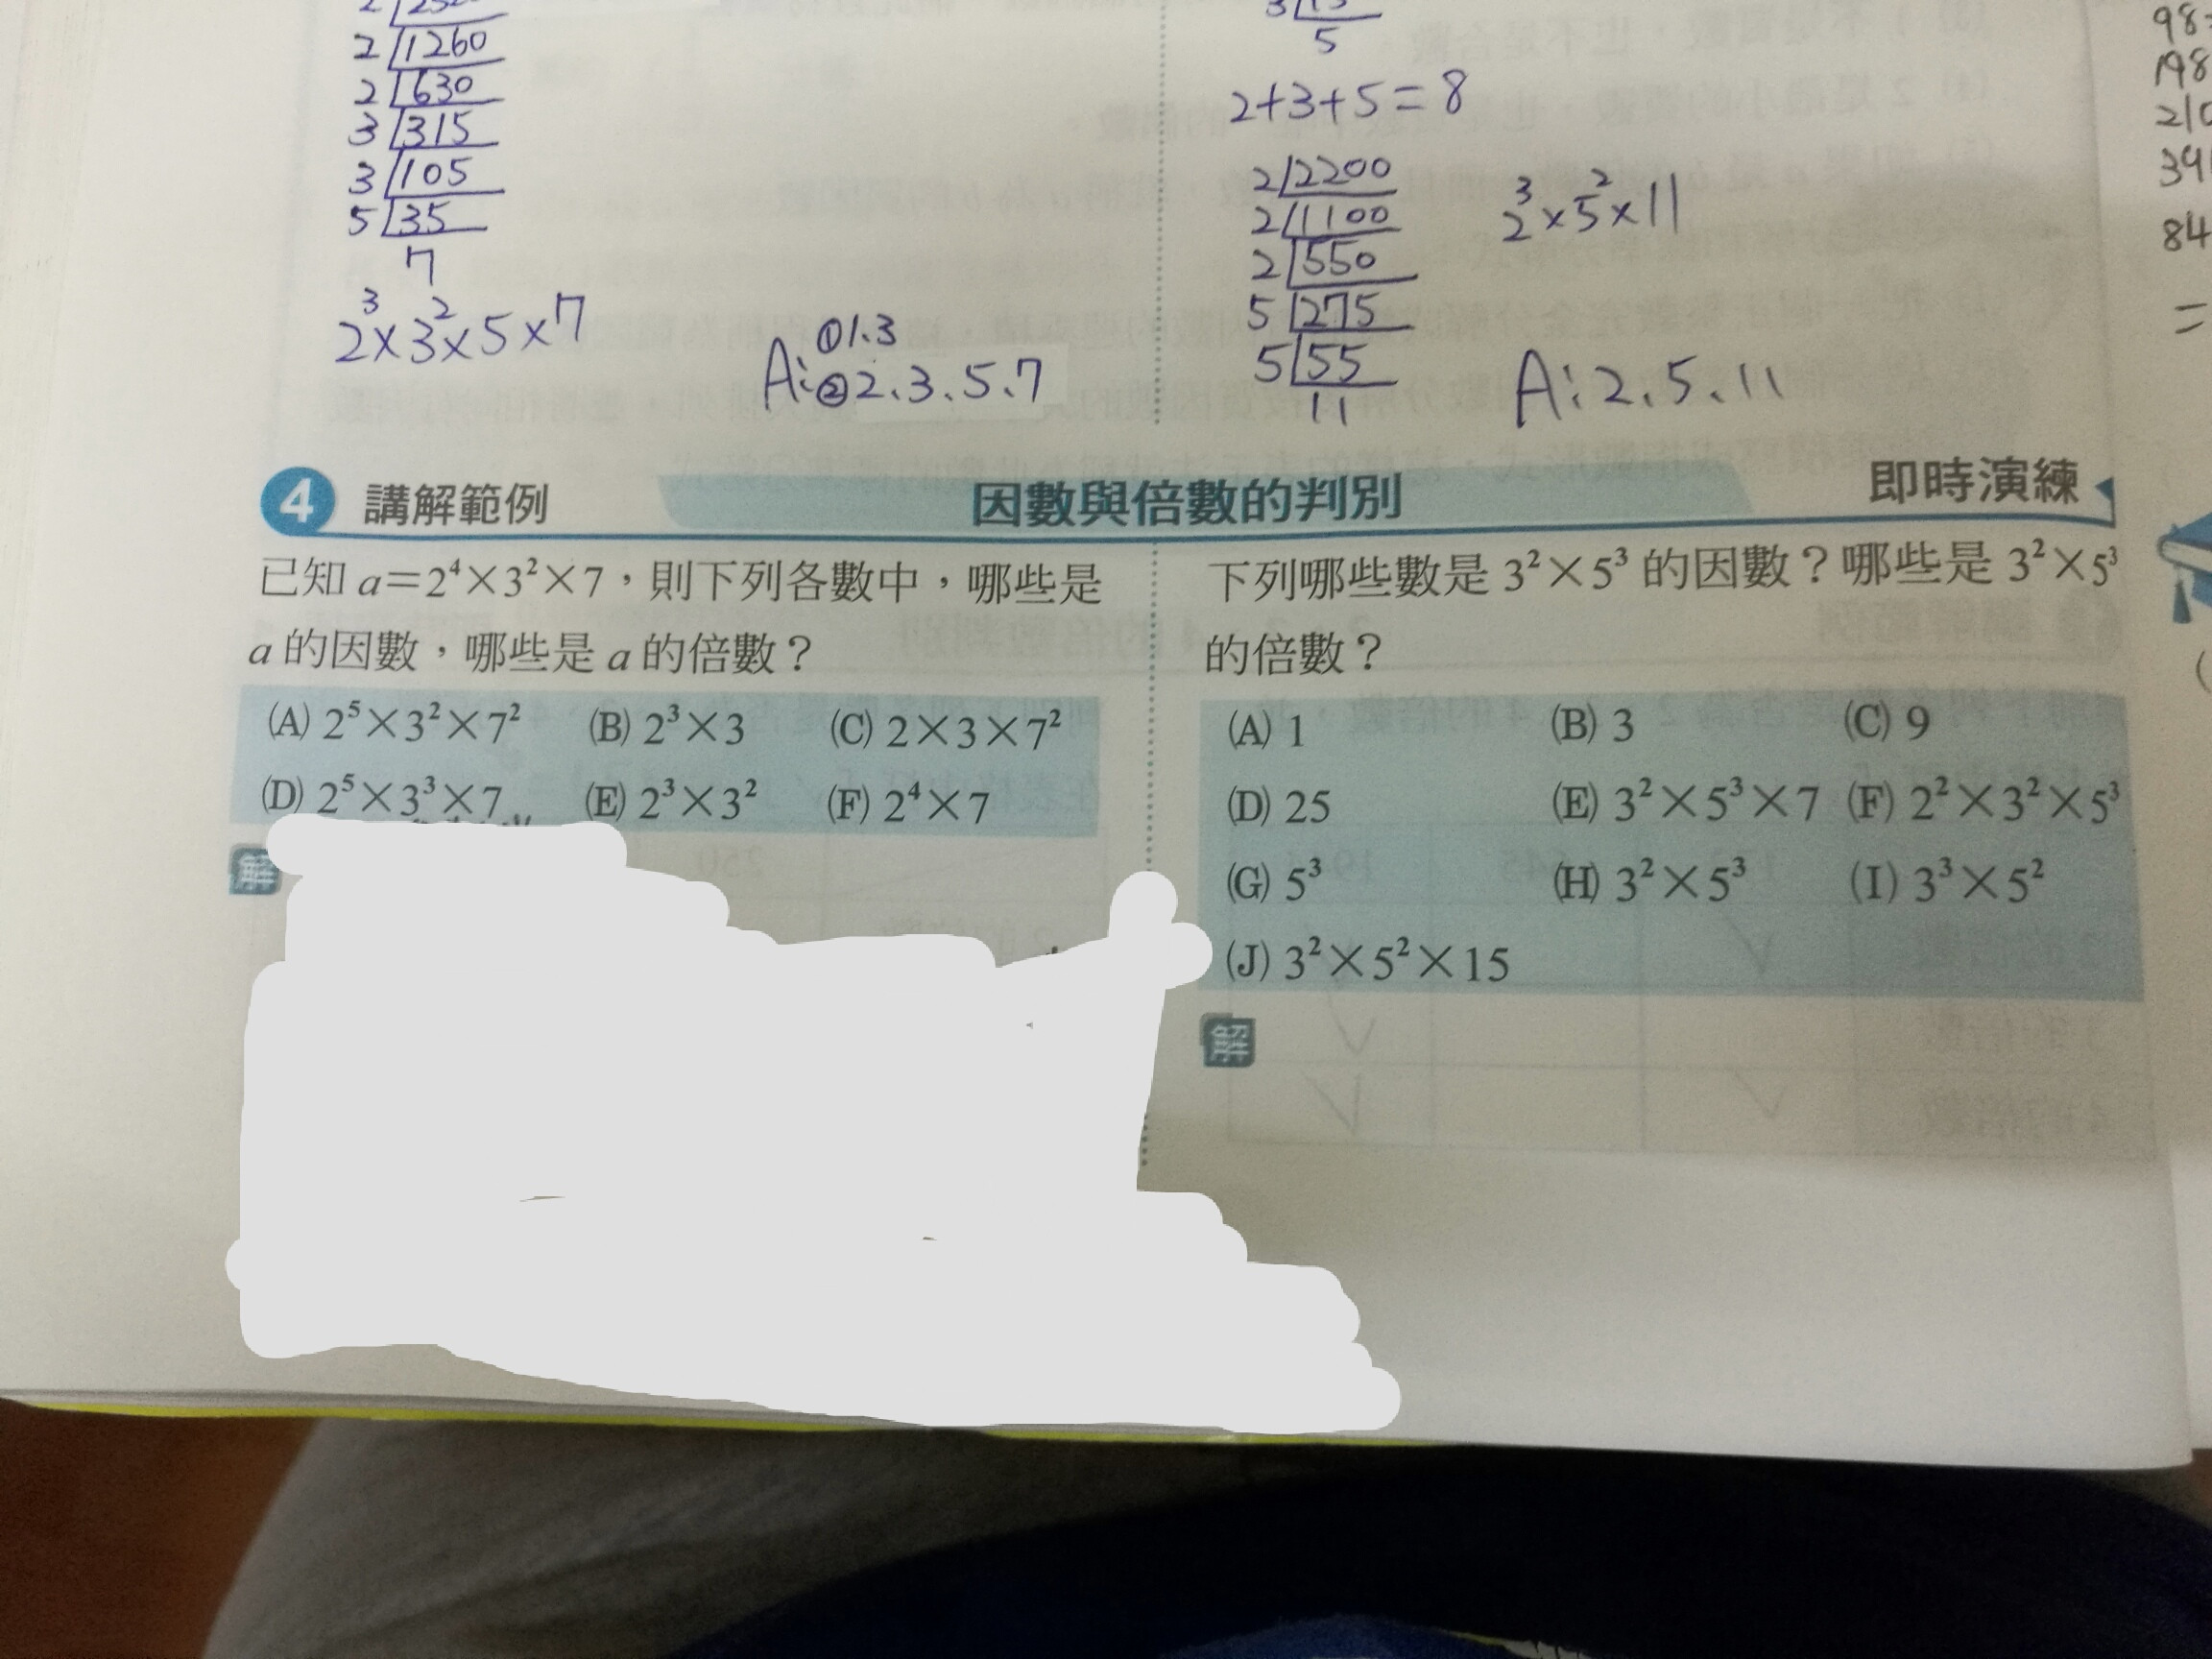 2 1260
2 630
3 315
3 105
5 35
7
2³×3²×5×7
A:①1.3
②2、3、5、7
5
2+3+5=8
2 2200
2 1100
2 550
5 275
5 55
11
2³×5²×11
A:2、5、11
98
198
210
39
84
=
4 講解範例 因數與倍數的判別 即時演練
已知 a=2⁴×3²×7,則下列各數中,哪些是
a 的因數,哪些是 a 的倍數?
(A) 2⁵×3²×7² (B) 2³×3 (C) 2×3×7²
(D) 2⁵×3³×7 (E) 2³×3² (F) 2⁴×7
解
下列哪些數是 3²×5³ 的因數?哪些是 3²×5³
的倍數?
(A) 1 (B) 3 (C) 9
(D) 25 (E) 3²×5³×7 (F) 2²×3²×5³
(G) 5³ (H) 3²×5³ (I) 3³×5²
(J) 3²×5²×15
解